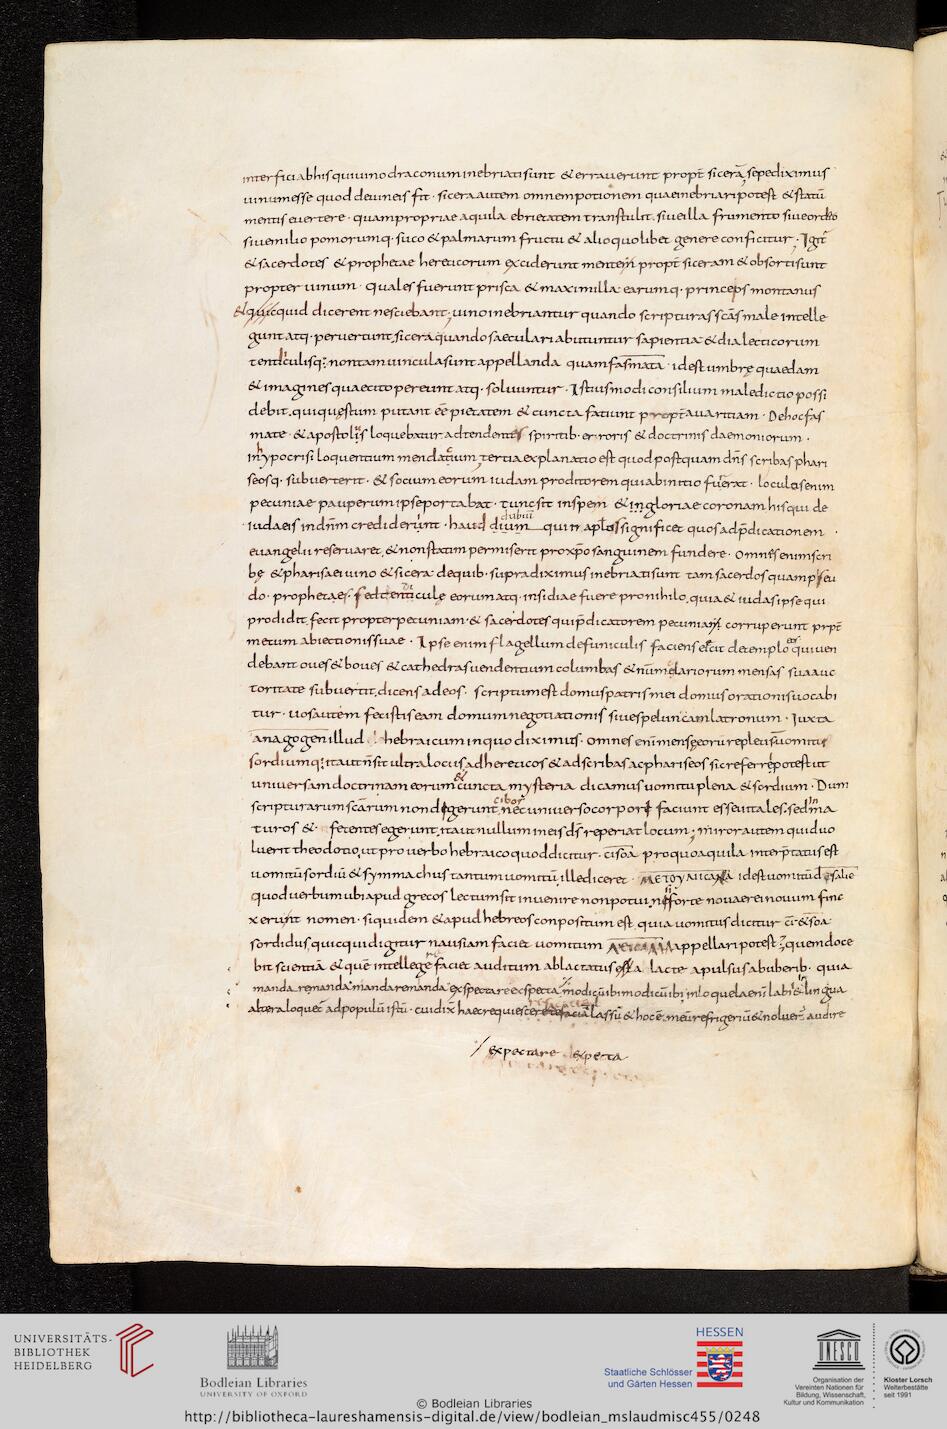 interfici abhis quiuino draconum inebriati sunt & errauerunt propt̄ sicerā, sepediximus
uinum esse quod deuineis fit · sicera autem omnem potionem quae inebriari potest & statū
mentis euertere · quam propriae aquila ebrietatem transtulit. siue illa frumento siue ordeo
siue milio pomorumq· suco & palmarum fructu & alio quolibet genere conficitur; Igit̄
& sacerdotes & prophetae hereticorum exciderunt mentem propt̄ siceram & obsorti sunt
propter uinum · quales fuerunt prisca & maximilla earumq· princeps montanus
& quicquid dicerent nesciebant; uino inebriantur quando scripturas scās male intelle
gunt atq· peruertunt, sicera quando saeculari abutuntur sapientia & dialecticorum
tendiculisq; non tam uincula sunt appellanda quam fasmata · idest umbrę quaedam
& imagines quae cito pereunt atq· soluuntur · Istius modi consilium maledictio possi
debit. qui quęstum putant ēē pietatem & cuncta fatiunt propt̄ auaritiam · De hoc fas
mate · & apostolus loquebatur adtendentes spiritib· erroris & doctrinis daemoniorum ·
in hypocrisi loquentium mendacium, tertia explanatio est quod postquam dn̄s scribas phari
seosq· subuerterit · & socium eorum iudam proditorem qui ab initio fuerat · loculos enim
pecuniae pauperum ipse portabat · tunc sit in spem & in gloriae coronam his qui de
iudaeis in dn̄m crediderunt · haud dubium quin apl̄os significet quos ad p̄dicationem
euangelii reseruaret, & non statim permiserit pro xp̄o sanguinem fundere · omnes enim scri
bę & pharisaei uino & sicera · de quib· supra diximus inebriati sunt tam sacerdos quam pseu
do · prophetaes · sed tenticulę eorum atq· insidiae fuere pro nihilo, quia & iudas ipse qui
prodidit, fecit propter pecuniam · & sacerdotes qui p̄dicatorem pecunia corruperunt prpt̄
metum abiectionis suae · Ipse enim flagellum de funiculis faciens eiecit de templo eos qui uen
debant oues & boues & cathedras uendentium columbas & nūmolariorum mensas sua auc
toritate subuertit, dicens ad eos · scriptum est domus patris mei domus orationis uocabi
tur · uos autem fecistis eam domum negotiationis siue speluncam latronum · Iuxta
anagogen illud hebraicum in quo diximus · omnes enim mensę eorū repletę sunt uomitus
sordiumq; ita ut n̄ sit ultra locus, ad hereticos & ad scribas ac phariseos sic referre potest ut
uniuersam doctrinam eorum & cuncta mysteria dicamus uomitu plena & sordium · Dum
scripturarum scārum non digerunt cibos nec uniuerso corpori faciunt esse uitales, sed in ma
turos & fecentes egerunt, ita ut nullum in eis dš reperiat locum; miror autem quid uo
luerit theodotio, ut pro uerbo hebraico quod dicitur · cisoa pro quo aquila interp̄tatus est
uomitū sordiū & symmachus tantum uomitū, ille diceret · idest uomitū
quod uerbum ubi apud grecos lectum sit inuenire non potui, nisi forte nouae rei nouum finc
xerunt nomen · siquidem & apud hebreos conpositum est, quia uomitus dicitur ci · & soa
sordidus, quicquid igitur nausiam faciet uomitum appellari potest; quem doce
bit scientiā & quē intellegere faciet auditum ablactatus a lacte apulsus ab uberib· quia
manda remanda · manda remanda expectare expecta modicū ibi modicū ibi, in loquela enī labii & lingua
altera loquet̄ ad populū istū · cui dix̄ haec requies reficite lassū & hoc ē meū refrigeriū & noluer̄ audire
expectare expecta
UNIVERSITÄTS-
BIBLIOTHEK
HEIDELBERG
Bodleian Libraries
UNIVERSITY OF OXFORD
HESSEN
Staatliche Schlösser
und Gärten Hessen
UNESCO
Organisation der
Vereinten Nationen für
Bildung, Wissenschaft,
Kultur und Kommunikation
Kloster Lorsch
Welterbestätte
seit 1991
© Bodleian Libraries
http://bibliotheca-laureshamensis-digital.de/view/bodleian_mslaudmisc455/0248